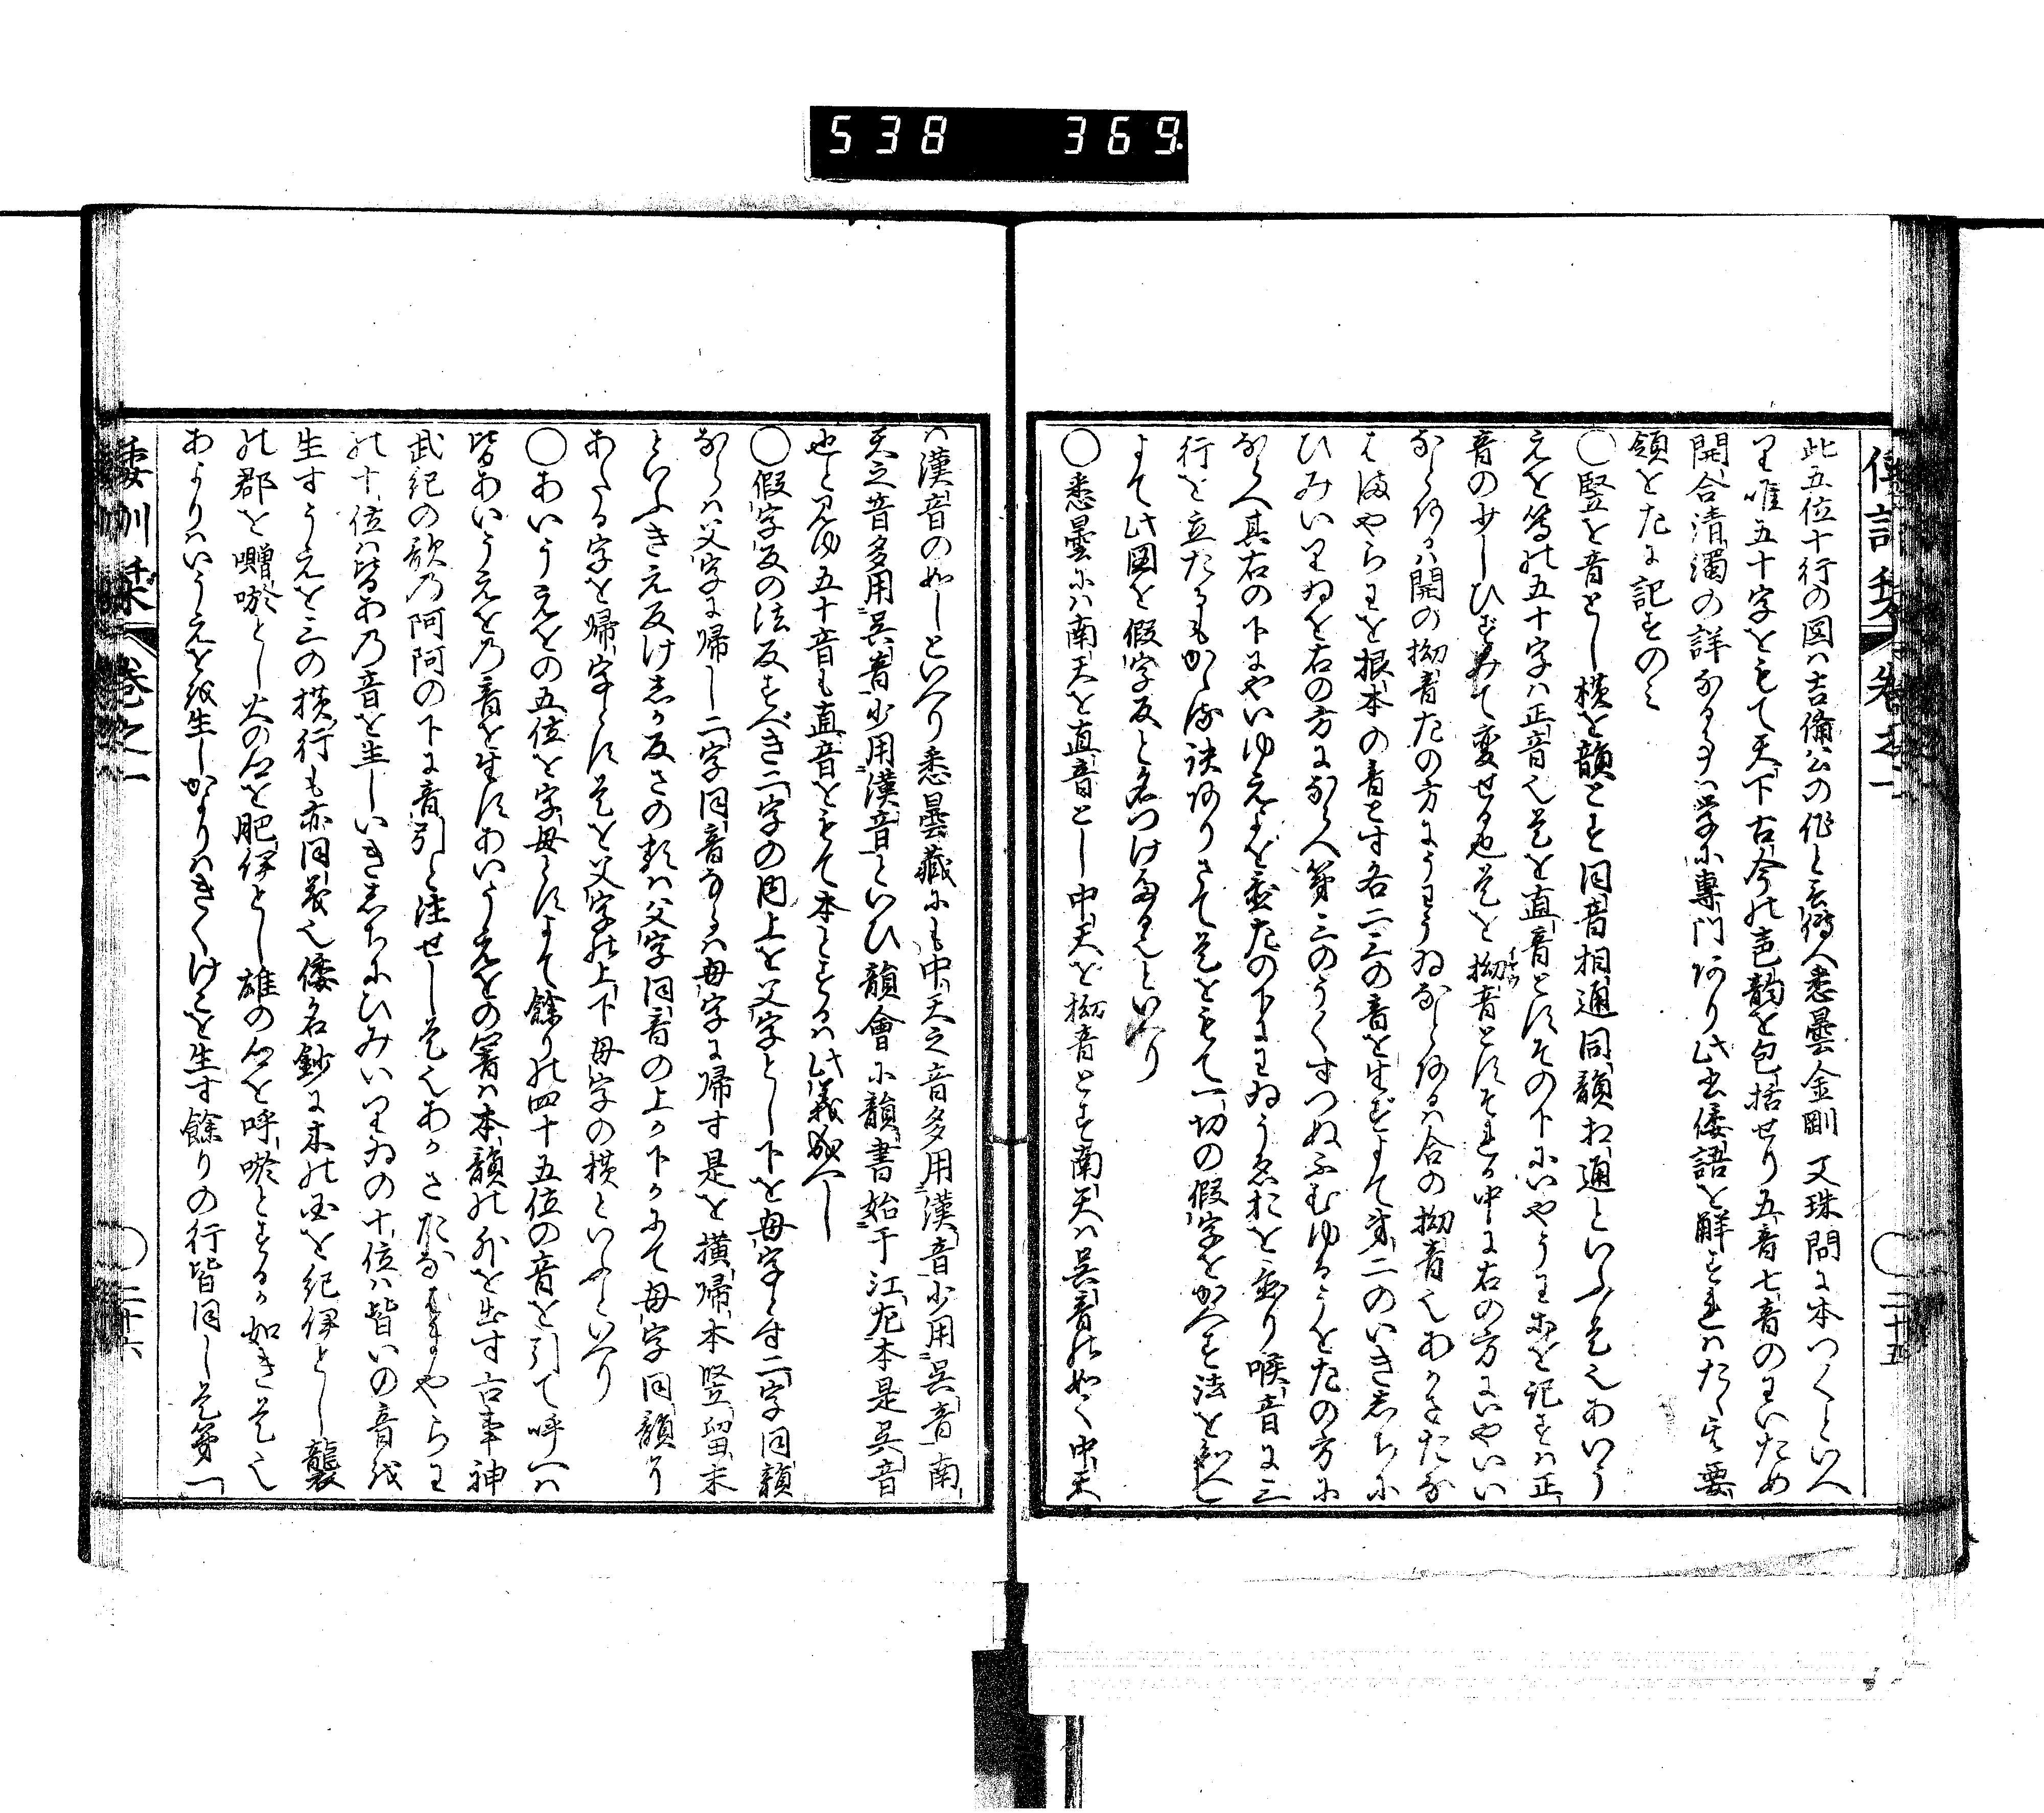 538 369
倭訓栞 卷之一 二十五
此五位十行の図ハ吉備公の作と言傳へ悉曇金剛文珠問に本つくといへ
り唯五十字をもて天下古今の声韵を包括せり五音七音のわいため
開合清濁の詳なる事ハ学に專門あり此書倭語を解するハたゝ其要
領をたに記すのミ
○竪を音とし横を韻とす同音相通同韻相通といふ是也あいう
えを等の五十字ハ正音也是を直音とすその下にいやうわを記すハ正
音の少しひずみて変せる也是を拗音とすそれか中に右の方にいやいい
なとあるハ開の拗音左の方にうわうゐなとあるハ合の拗音也あかさたな
はまやらわを根本の音とす各二三の音を生ずよて第二のいきしちに
ひみいりゐを右の方にならへ第三のうくすつぬふむゆるうを左の方に
ならへ其右の下にやいゆえよを重左の下にわゐうゑおを重り喉音に三
行を立たるもかゝる訣ありさて是をもて一切の假字をかへす法を知へし
よて此図を假字反と名つけたるといへり
○悉曇にハ南天を直音とし中天を拗音とす南天ハ呉音の如く中天
ハ漢音の如しといへり悉曇藏にも中天之音多用漢音少用呉音南
天之昔多用呉音少用漢音といひ韻會に韻書始于江左本是呉音
也と見ゆ五十音も直音をもて本とするハ此義成へし
○假字反の法反すべき二字の内上を父字とし下を母字とす二字同韻
なるハ父字に帰し二字同音なるハ母字に帰す是を横帰本竪留末
といふきえ反けしか反さの類ハ父字同音の上か下かにて母字同韻に
あたる字を帰字とす是を父字の上下母字の横といふといへり
○あいうえをの五位を字母とすよて餘りの四十五位の音を引て呼へハ
皆あいうえをの音を生すあいうえをの響ハ本韻の外を出す古事神
武紀の歌乃阿阿の下に音引と注せし是也あかさたなはまやらわ
の十位ハ皆あ乃音を生しいきしちにひみいりゐの十位ハ皆いの音を
生すうえをこの横行も亦同義也倭名鈔に木の国を紀伊とし襲
の郡を囎唹とし火の国を肥伊とし雄の国を呼唹とするか如き是也
あよりハいうえをを生しかよりハきくけこを生す餘りの行皆同し是第一
倭訓栞 卷之一 二十六